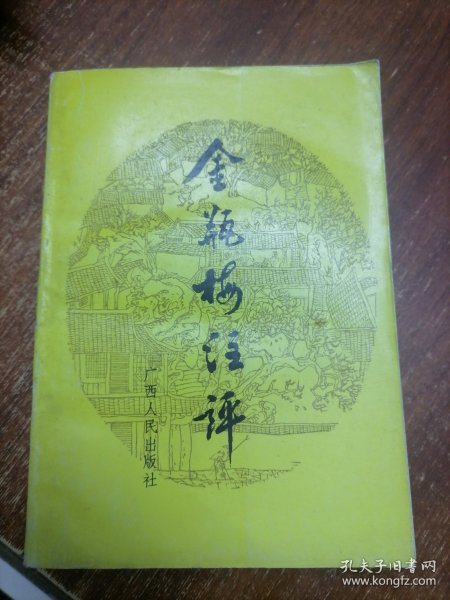 金瓶梅注评
广西人民出版社
孔夫子旧书网
www.kongfz.com